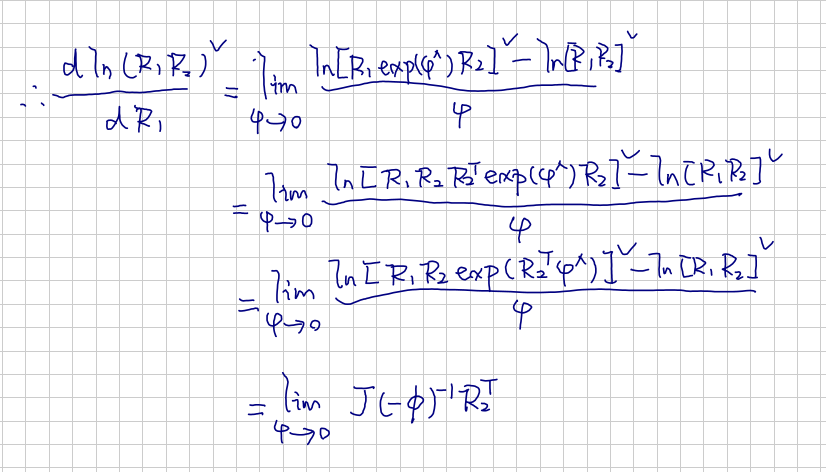 ∴ d ln(R₁R₂)^∨ / dR₁ = lim_{φ→0} (ln[R₁ exp(φ^∧) R₂]^∨ − ln[R₁R₂]^∨) / φ
= lim_{φ→0} (ln[R₁R₂R₂^T exp(φ^∧) R₂]^∨ − ln[R₁R₂]^∨) / φ
= lim_{φ→0} (ln[R₁R₂ exp(R₂^T φ^∧)]^∨ − ln[R₁R₂]^∨) / φ
= lim_{φ→0} J(−ϕ)^{-1} R₂^T